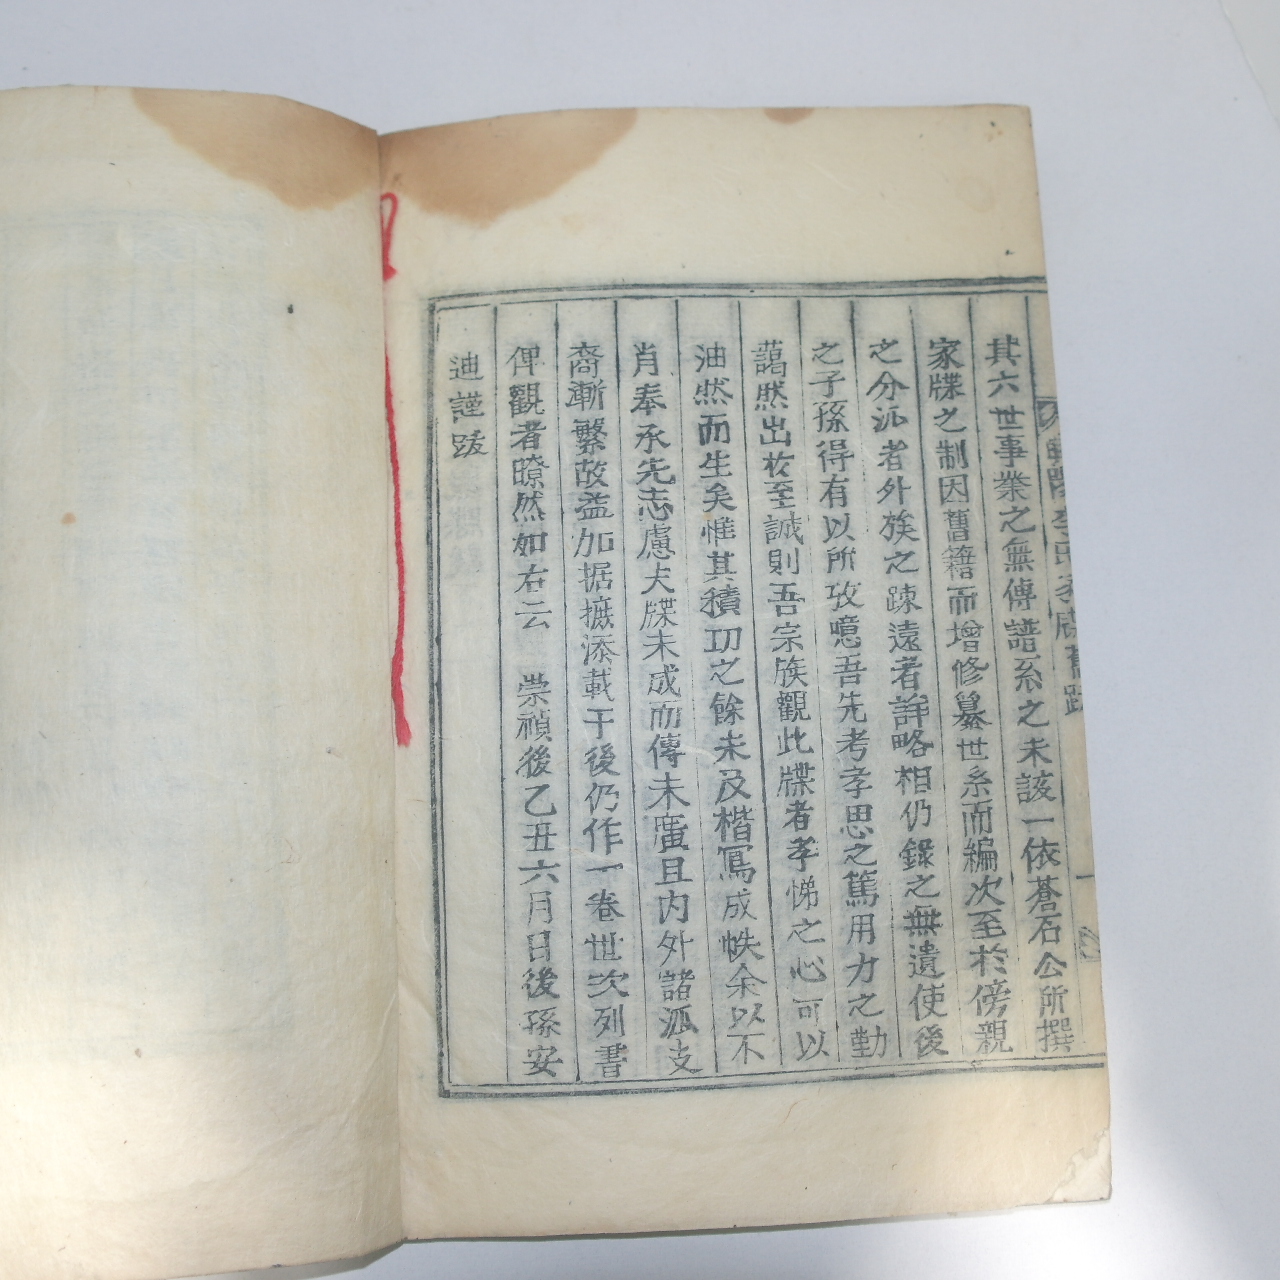 其六世事業之無傳譜系之未該一依蒼石公所撰
家牒之制因舊籍而增修纂世系而編次至於傍親
之分派者外族之疎遠者詳略相仍錄之無遺使後
之子孫得有以所攷噫吾先考孝思之篤用力之勤
藹然出於至誠則吾宗族觀此牒者孝悌之心可以
油然而生矣惟其積功之餘未及楷寫成帙余以不
肖奉承先志慮夫牒未成而傳未廣且内外諸派支
裔漸繁故益加据摭添載于後仍作一卷世次列書
俾觀者瞭然如右云 崇禎後乙丑六月日後孫安
迪謹跋